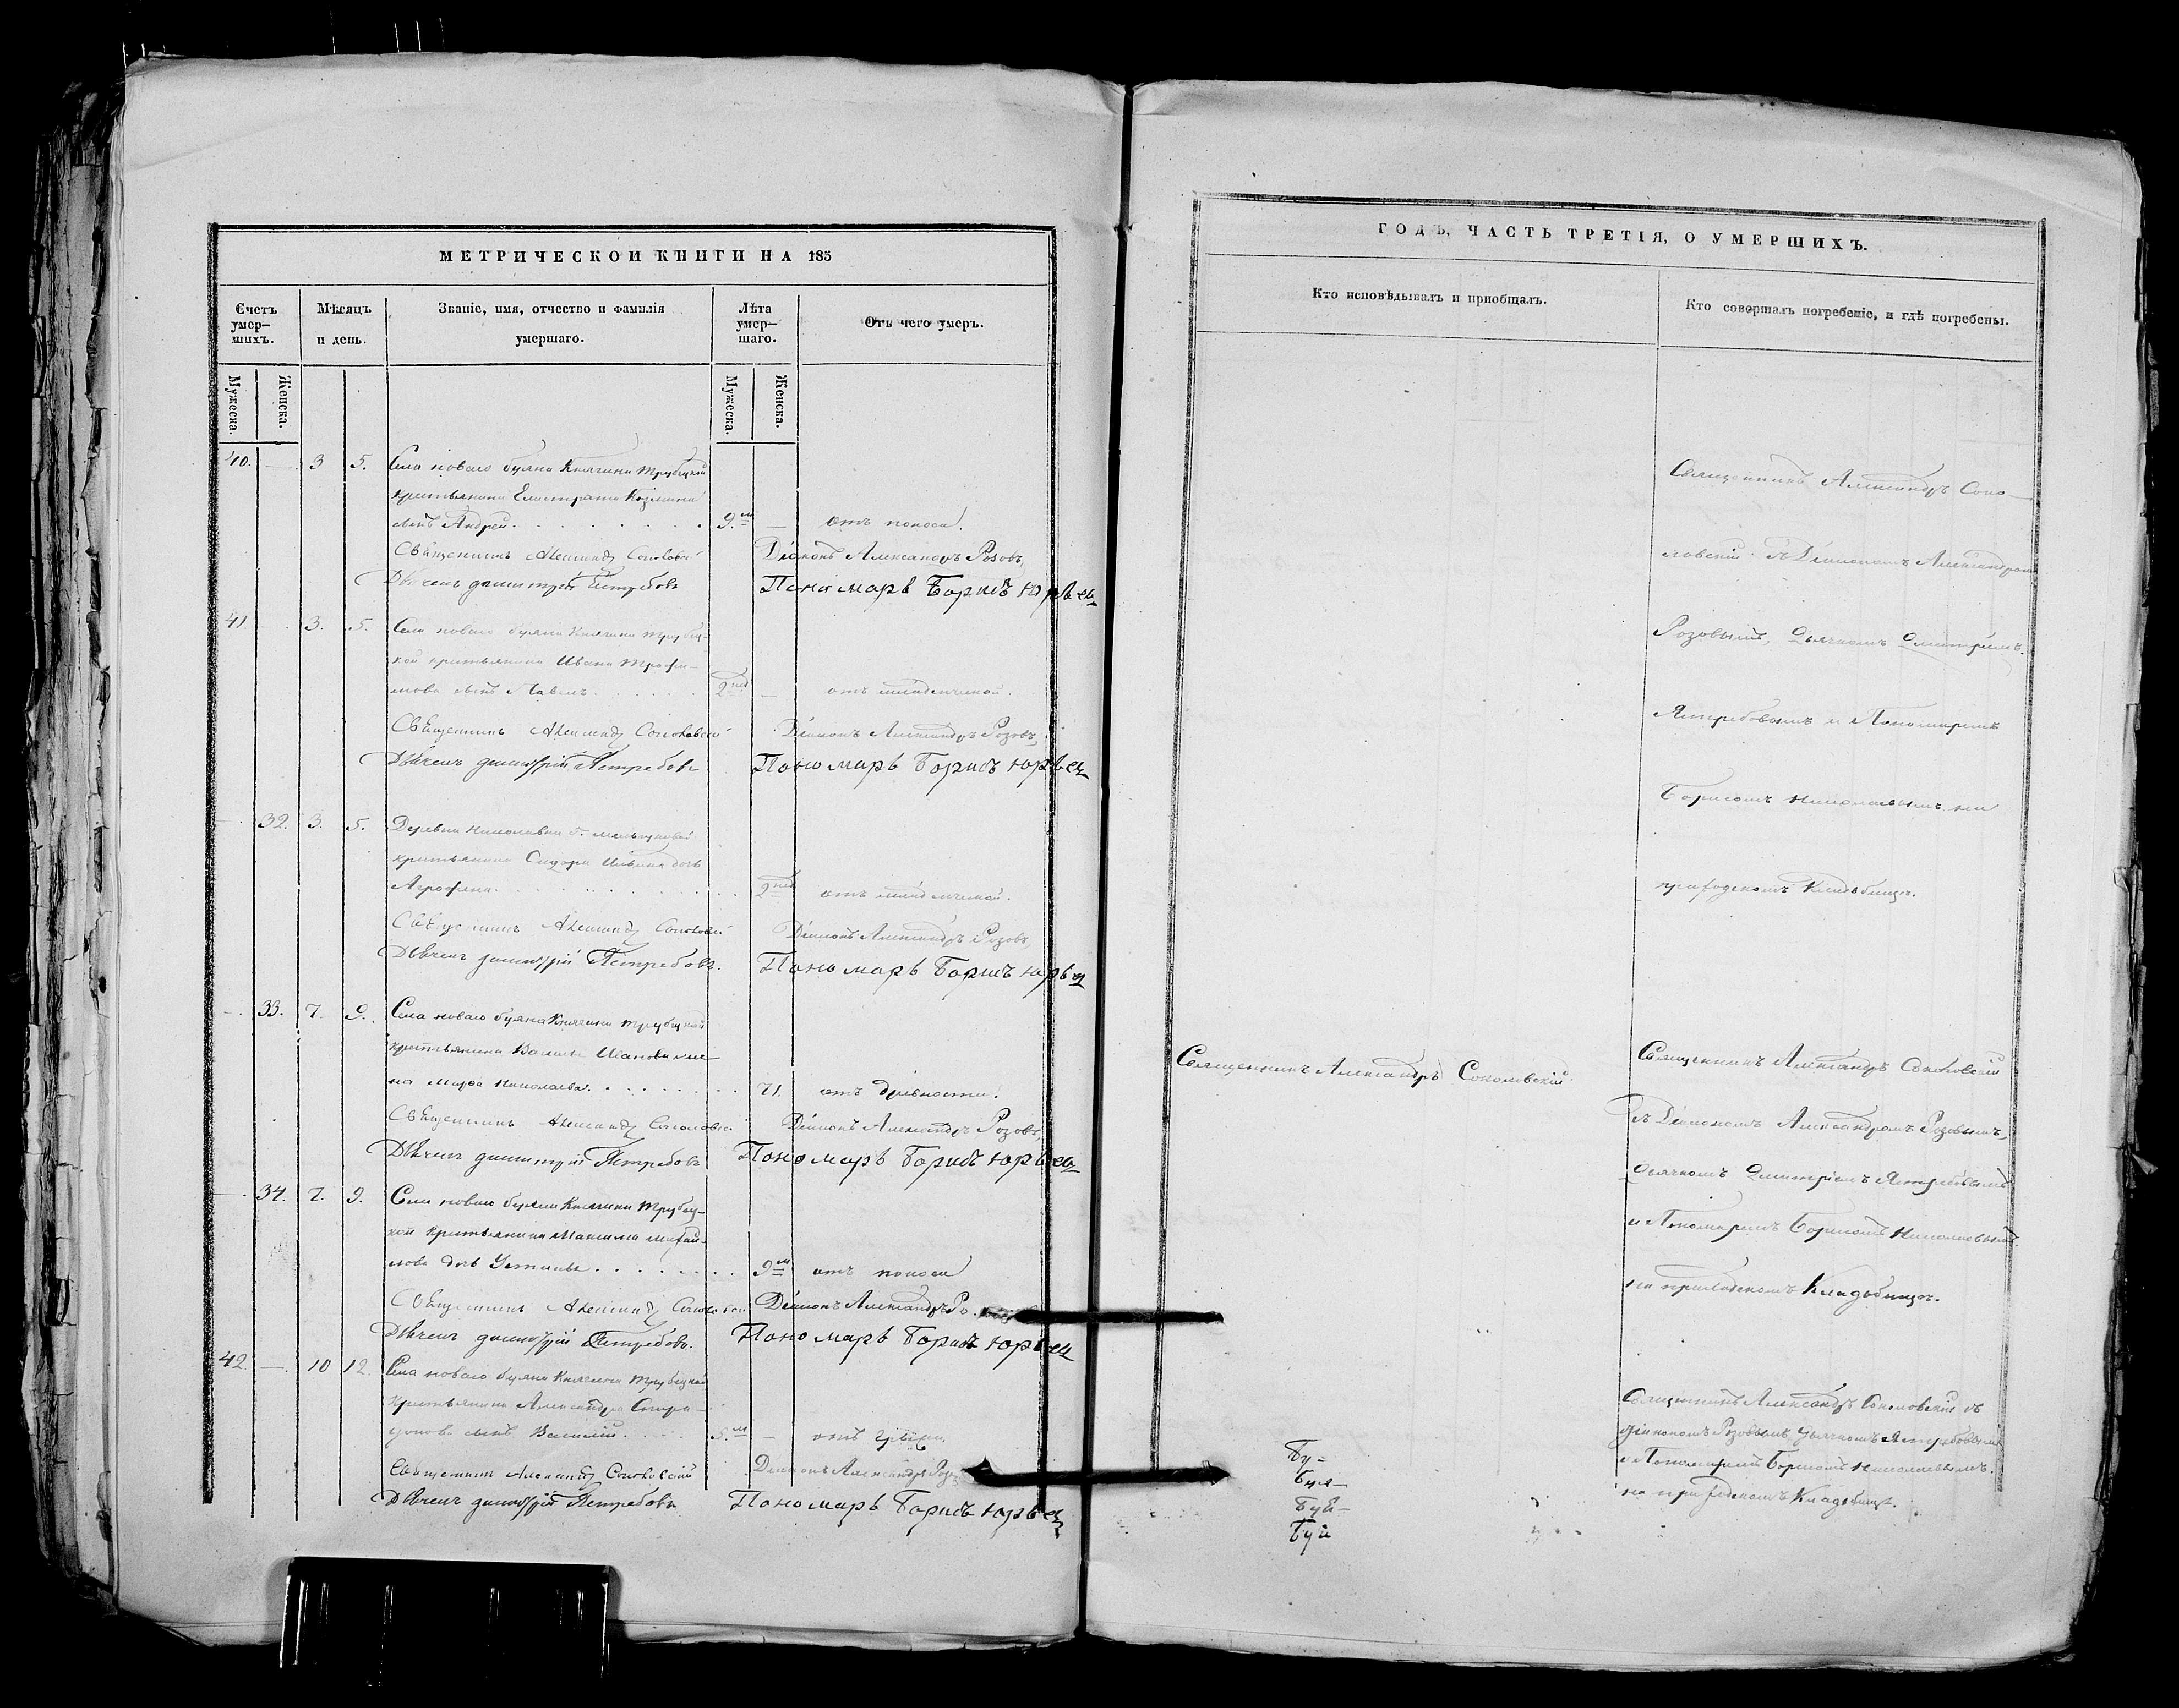 МЕТРИЧЕСКОЙ КНИГИ НА 185
Счетъ умер-шихъ.
Мѣсяцъ и день.
Званіе, имя, отчество и фамилія умершаго.
Лѣта умер-шаго.
Отъ чего умеръ.
Мужеска. Женска.
Мужеска. Женска.
40. — 3 5. Села новаго буяна Княгини Трубецкой
крестьянина Елистрата Козмина
сынъ Андрей. 9.м — отъ поноса.
Священникъ Александръ Соколовскій Діаконъ Александръ Розовъ,
Дьячекъ Димитрій Ястребовъ Пономарь Борисъ Юрьец
41. 3. 5. Села новаго буяна Княгини Трубец-
кой крестьянина Ивана Трофи-
мова сынъ Павелъ. 2 нед — отъ младенческой.
Священникъ Александръ Соколовскій Діаконъ Александръ Розовъ,
Дьячекъ Димитрій Ястребовъ Пономарь Борисъ Юрьец
— 32. 3. 5. Деревни Николаевки
крестьянина Сидора Ильина дочь
Агрофена. 2 нед отъ младенческой.
Священникъ Александръ Соколовскій Діаконъ Александръ Розовъ,
Дьячекъ Димитрій Ястребовъ. Пономарь Борисъ Юрьец
— 33. 7. 9. Села новаго буяна Княгини Трубецкой
крестьянина
на Марфа Николаева. 71. отъ древности.
Священникъ Александръ Соколовскій Діаконъ Александръ Розовъ,
Дьячекъ Димитрій Ястребовъ Пономарь Борисъ Юрьец
— 34. 7. 9. Села новаго буяна Княгини Трубец-
кой крестьянина Максима Михай-
лова дочь Устинья. 9м отъ поноса
Священникъ Александръ Соколовскій Діаконъ Александръ Ро
Дьячекъ Димитрій Ястребовъ. Пономарь Борисъ Юрьец
42. — 10 12. Села новаго буяна Княгини Трубецкой
крестьянина Александра Спири-
донова сынъ Василій. 5.м — отъ грыжи.
Священникъ Александръ Соколовскій Діаконъ Александръ Роз
Дьячекъ Димитрій Ястребовъ Пономарь Борисъ Юрьец
ГОДЪ, ЧАСТЬ ТРЕТІЯ, О УМЕРШИХЪ.
Кто исповѣдывалъ и пріобщалъ.
Кто совершалъ погребеніе, и гдѣ погребены.
Священникъ Александръ Соко-
ловскій съ Діакономъ Александромъ
Розовымъ, Дьячкомъ Димитріемъ
Ястребовымъ и Пономаремъ
Борисомъ Николаевымъ на
приходскомъ Кладбищѣ.
Священникъ Александръ Соколовскій
Священникъ Александръ Соколовскій
съ Діакономъ Александромъ Розовымъ,
Дьячкомъ Димитріемъ Ястребовымъ
и Пономаремъ Борисомъ Николаевымъ
на приходскомъ Кладбищѣ.
Священникъ Александръ Соколовскій съ
Діакономъ Розовымъ Дьячкомъ Ястребовымъ
и Пономаремъ Борисомъ Николаевымъ.
на приходскомъ Кладбищѣ.
Бу-
Буя-
Буй-
Буй